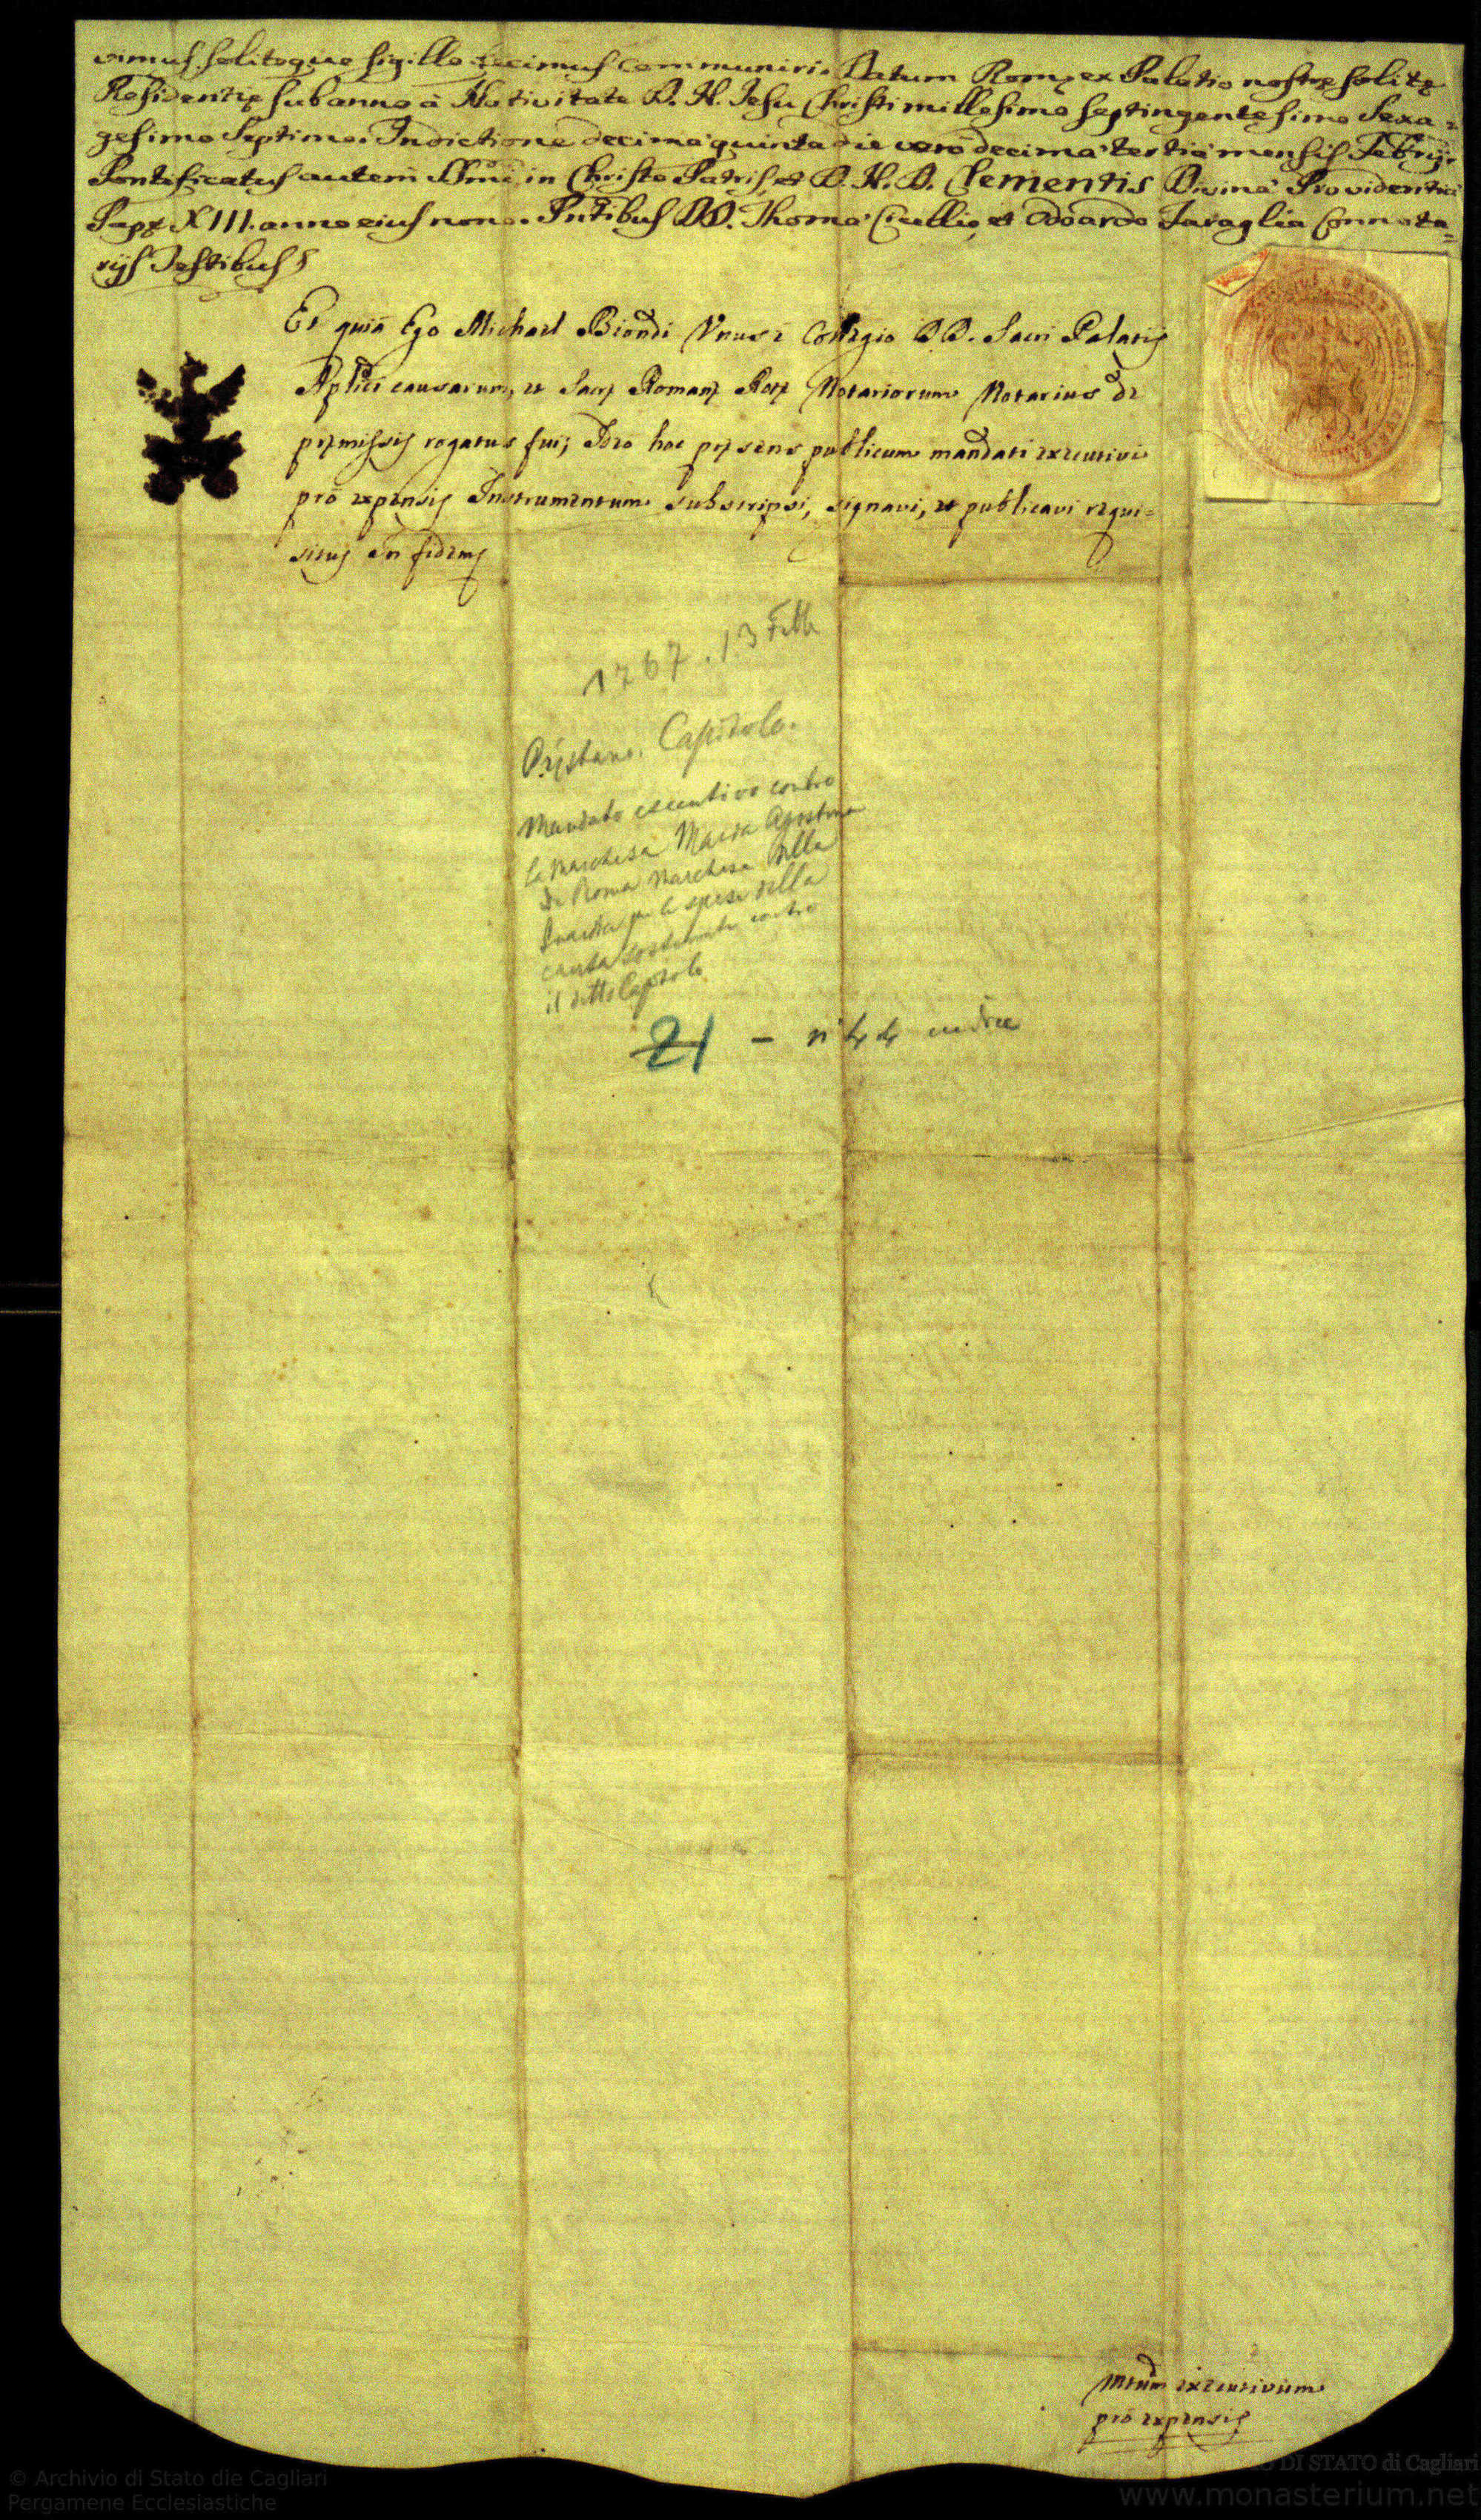 vimus, solitoque sigillo fecimus communiri. Datum Romę ex Palatio nostrę solitę
Residentię sub anno à Nativitate D. N. Jesu Christi millesimo septingentesimo Sexa=
gesimo Septimo. Indictione decima quinta die vero decima tertia mensis Febrij.
Pontificatus autem SSmi in Christo Patris, et D. N. D. Clementis Divina Providentia
Papę XIII. anno eius nono. Pntibus DD. Thoma Ciullio, et Odoardo Tavaglia Connota=
rijs Testibus
Et quia Ego Michael Biondi Unus è Collegio DD. Sacri Palatij
Aplici causarum, et Sacrę Romanę Rotę Notariorum Notarius de
pręmissis rogatus fui; Ideo hoc pręsens publicum mandati executivi
pro expensis Instrumentum subscripsi, signavi, et publicavi requi=
situs In fidem
1767. 13 Febb
Oristano. Capitolo.
Mandato esecutivo contro
la marchesa Maria Agostina
De Roma Marchesa della
Guardia per le spese della
causa sostenuta contro
il detto Capitolo
21 – n 44 indice
Mtum executivum
pro expensis
© Archivio di Stato die Cagliari
Pergamene Ecclesiastiche
DI STATO di Cagliari
www.monasterium.net